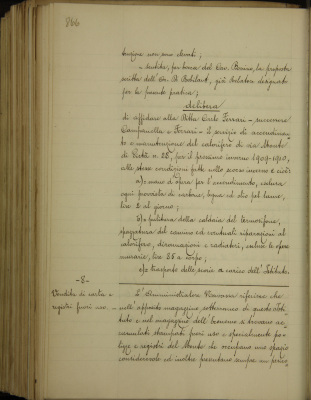 866
tuzione non sono dovuti;
- sentita, per bocca del Cav. Bonino, la proposta
scritta dell'On. Di Robilant, già Relatore designato
per la presente pratica;
delibera
di affidare alla Ditta Carlo Ferrari - successore
Campanella e Ferrari - il servizio di accensione
e manutenzione del calorifero di via Monte
di Pietà n. 28, per il prossimo inverno 1909-1910,
alle stesse condizioni fatte nello scorso inverno e cioè:
a) - mano d'opera per l'accendimento, esclusa
ogni provvista di carbone, legna ed olio pel lume,
lire 2 al giorno;
b) - pulitura della caldaia del termosifone,
spazzatura del camino ed eventuali riparazioni al
calorifero, diramazioni e radiatori, escluse le opere
murarie, lire 25 a corpo;
c) - trasporto delle scorie a carico dell'Istituto.
- 8 -
Vendita di carta e
registri fuori uso -
L'Amministratore riferisce che
nell'apposito magazzino sotterraneo di questo Isti-
tuto e nel magazzino dell'Economo si trovano ac-
cumulati stampati fuori uso e specialmente po-
lizze e registri del Monte che occupano uno spazio
considerevole ed inoltre presentano sempre un peri-